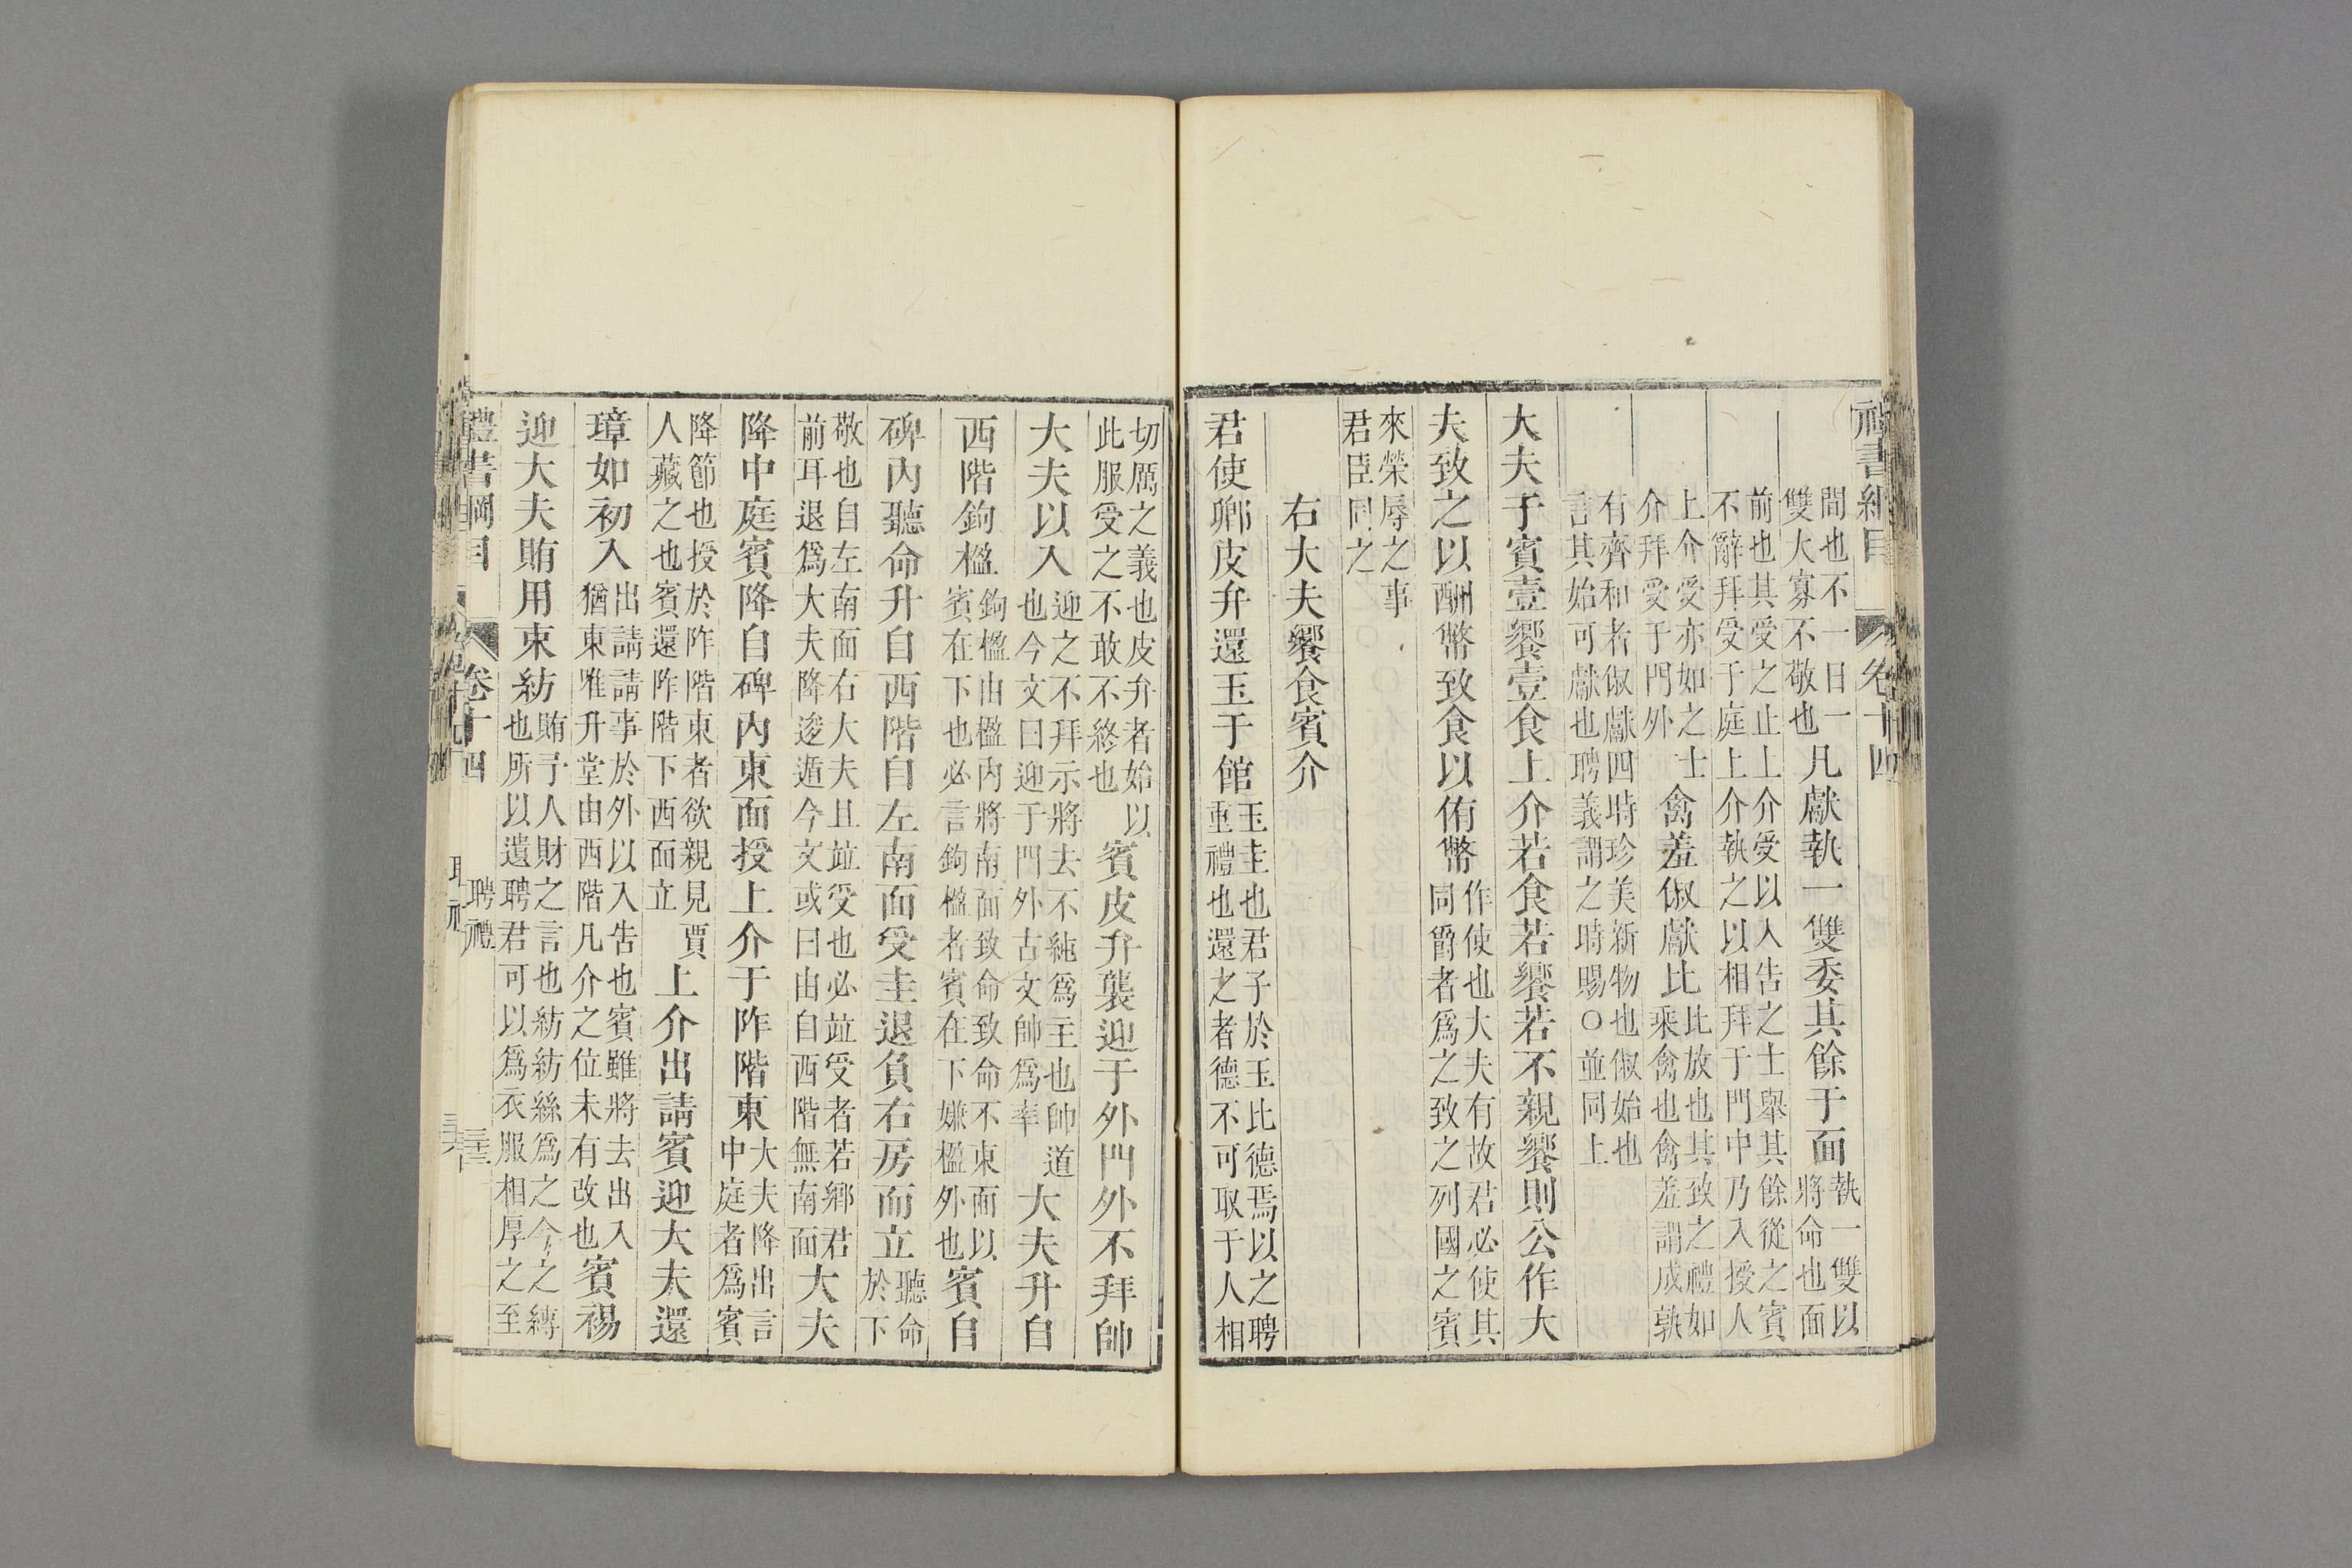 禮書綱目 卷十四
間也不一日一雙大寡不敬也凡獻執一雙委其餘于面執一雙以將命也面
前也其受之止上介受以入告之士舉其餘從之賓不辭拜受于庭上介執之以相拜于門中乃入授人
上介受亦如之士介拜受于門外禽羞俶獻比比放也其致之禮如乘禽也禽羞謂成孰
有齊和者俶獻四時珍美新物也俶始也言其始可獻也聘義謂之時賜○並同上
大夫于賓壹饗壹食上介若食若饗若不親饗則公作大
夫致之以酬幣致食以侑幣作使也大夫有故君必使其同爵者爲之致之列國之賓
來榮辱之事君臣同之
右大夫饗食賓介
君使卿皮弁還玉于館玉圭也君子於玉比德焉以之聘重禮也還之者德不可取于人相
切厲之義也皮弁者始以此服受之不敢不終也賓皮弁襲迎于外門外不拜帥
大夫以入迎之不拜示將去不純爲主也帥道也今文曰迎于門外古文帥爲率大夫升自
西階鉤楹鉤楹由楹內將南面致命致命不東面以賓在下也必言鉤楹者賓在下嫌楹外也賓自
碑內聽命升自西階自左南面受圭退負右房而立聽命於下
敬也自左南面右大夫且竝受也必竝受者若鄉君前耳退爲大夫降逡遁今文或曰由自西階無南面大夫
降中庭賓降自碑內東面授上介于阼階東大夫降出言中庭者爲賓
降節也授於阼階東者欲親見賈人藏之也賓還阼階下西面立上介出請賓迎大夫還
璋如初入出請請事於外以入告也賓雖將去出入猶東唯升堂由西階凡介之位未有改也賓裼
迎大夫賄用束紡賄予人財之言也紡紡絲爲之今之縳也所以遺聘君可以爲衣服相厚之至
禮書綱目 卷十四 聘禮